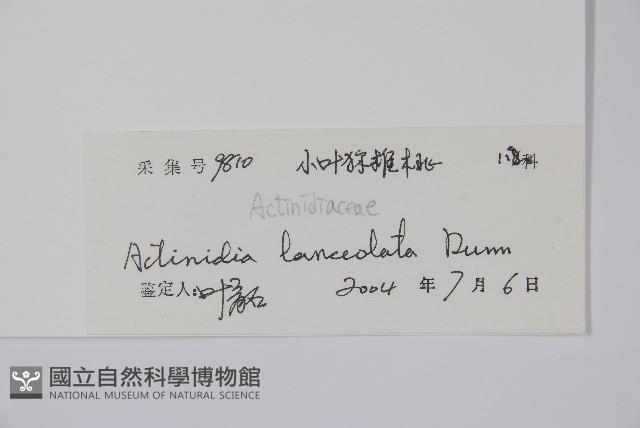 采集号 9810 小叶猕猴桃 科
Actinidiaceae
Actinidia lanceolata Dunn
鉴定人: 叶 2004 年 7 月 6 日
國立自然科學博物館
NATIONAL MUSEUM OF NATURAL SCIENCE